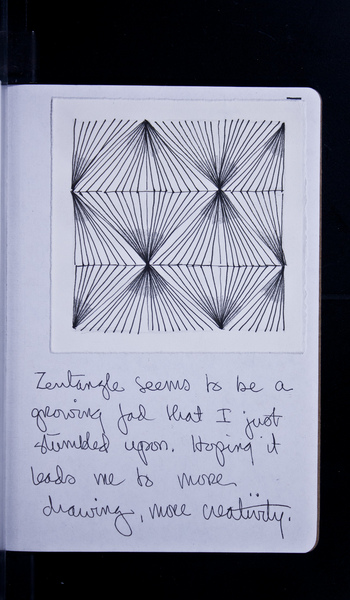 Zentangle seems to be a
growing fad that I just
stumbled upon. Hoping it
leads me to more
drawing, more creativity.